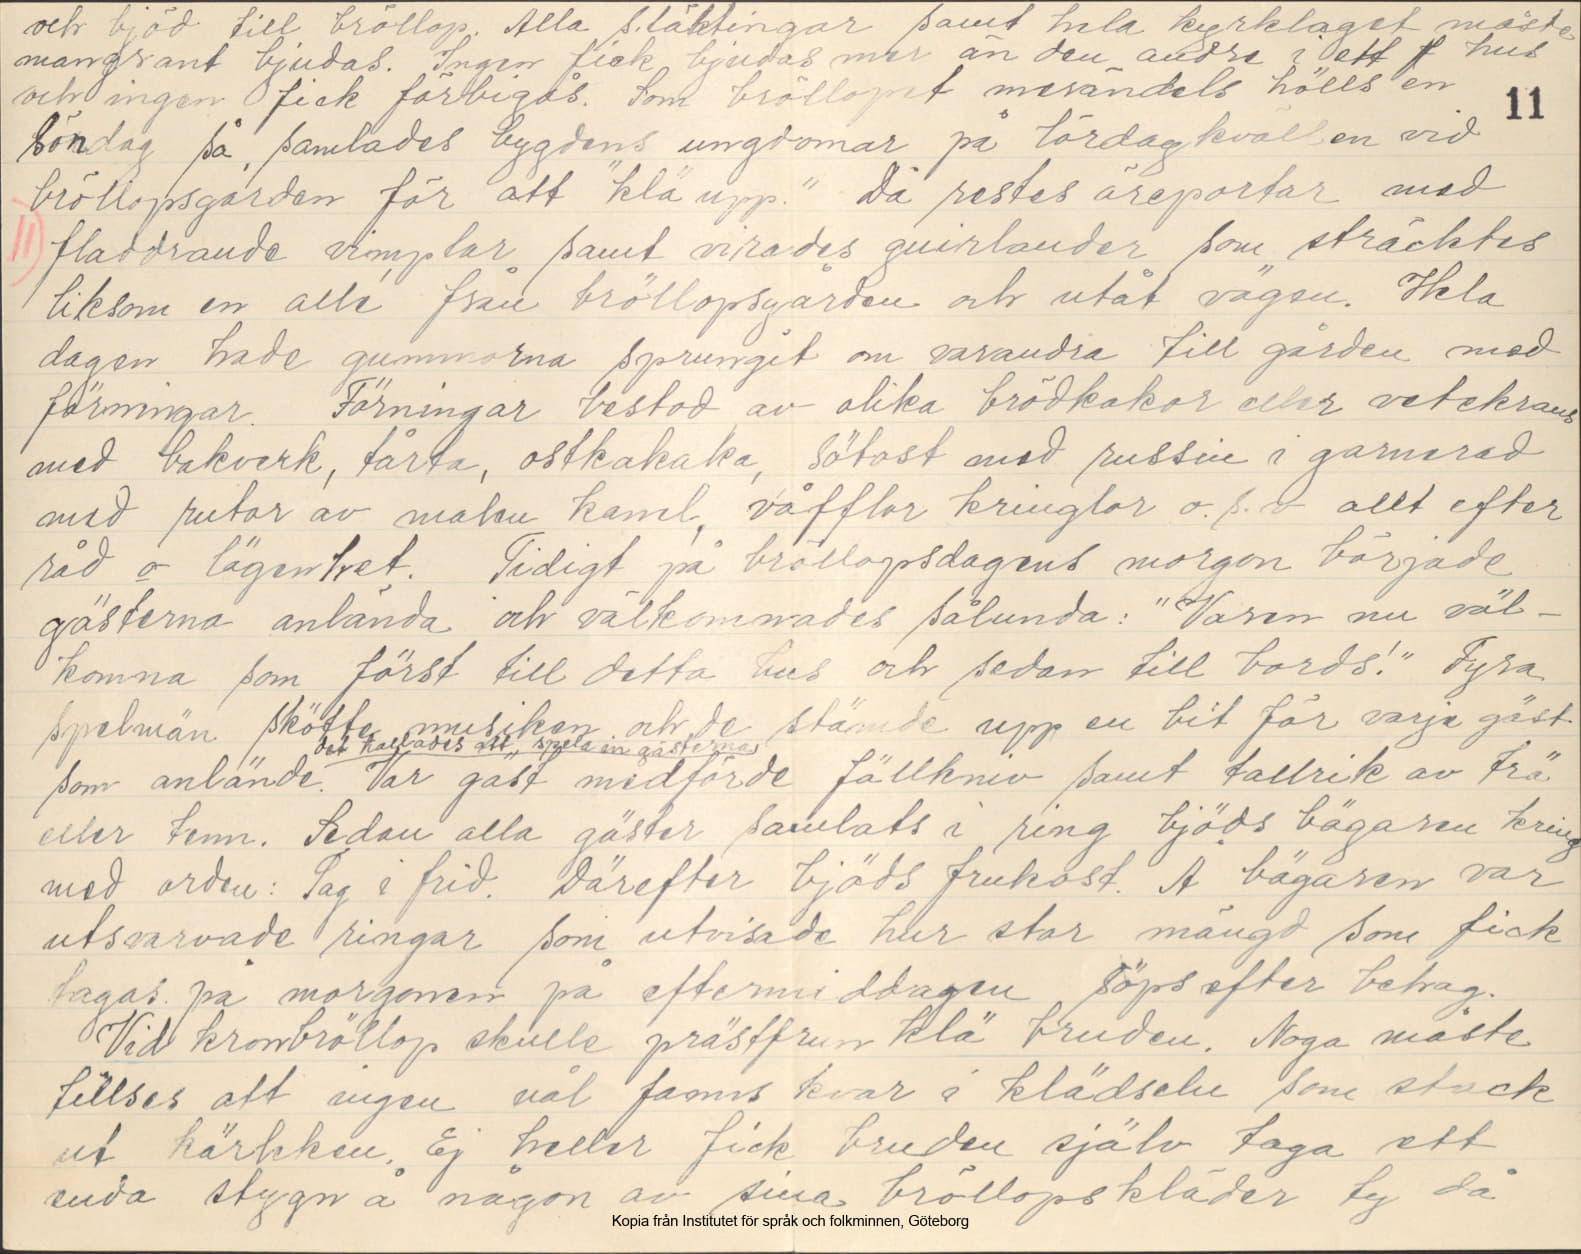 och bjöd till bröllop. Alla släktingar samt hela kyrklaget måste
mangrant bjudas. Ingen fick bjudas mer än den andre i ett hus
och ingen fick förbigås. Som bröllopet merändels hölls en
11
söndag så samlades bygdens ungdomar på lördagkvällen vid
bröllopsgården för att "klä upp." Då restes äreportar med
11)
fladdrande vimplar samt virades guirlander som sträcktes
liksom en allé från bröllopsgården och utåt vägen. Hela
dagen hade gummorna sprungit om varandra till gården med
förningar. Förningar bestod av olika brödkakor eller vetekrans
med bakverk, tårta, ostkakaka, sötost med russin i garnerad
med rutor av malen kanel, våfflor kringlor o.s.v allt efter
råd o lägenhet. Tidigt på bröllopsdagens morgon började
gästerna anlända och välkomnades sålunda: "Varen nu väl-
komna som först till detta hus och sedan till bords!" Fyra
spelmän skötte musiken och de stämde upp en bit för varje gäst
det kallades att "spela in gästerna"
som anlände. Var gäst medförde fällkniv samt tallrik av trä
eller tenn. Sedan alla gäster samlats i ring bjöds bägaren kring
med orden: Tag i frid. Därefter bjöds frukost. Å bägaren var
utsvarvade ringar som utvisade hur stor mängd som fick
tagas på morgonen på eftermiddagen söps efter behag.
Vid kronbröllop skulle prästfrun klä bruden. Noga måste
tillses att ingen nål fanns kvar i klädseln som stack
ut kärleken. Ej heller fick bruden själv taga ett
enda stygn å någon av sina bröllopskläder ty då
Kopia från Institutet för språk och folkminnen, Göteborg